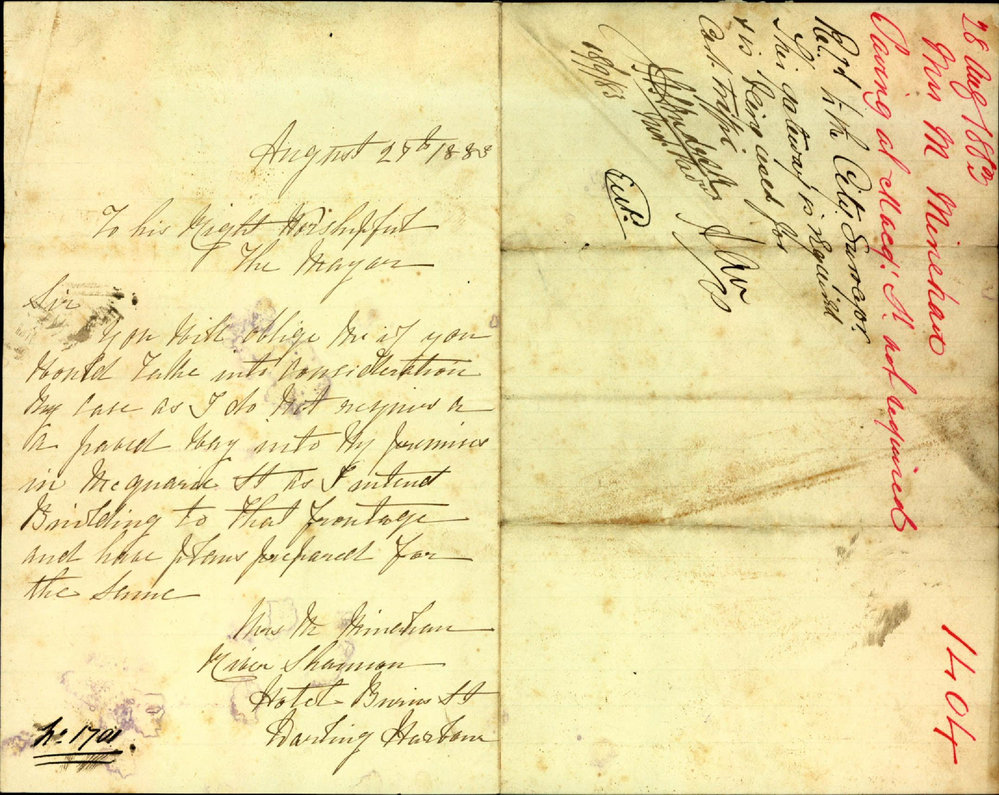 August 27th 1883
To his Right Worshipful
The Mayor
Sir
You will oblige me if you
Would Talke into Consideration
My Case as I do Not require a
a paved Way into My premises
in Mcquarie St as I intend
Building to That frontage
and have plans prepared For
the Same
Mrs M Minehan
River Shannon
Hotel Burns St
Darling Harbour
No 1701
28 Aug 1883
Mrs M Minehan
Paving at Macq: St not required
1404
Ref'd to the City Surveyor
The gateway is required
& is being used for
Cart traffic
18/9/83